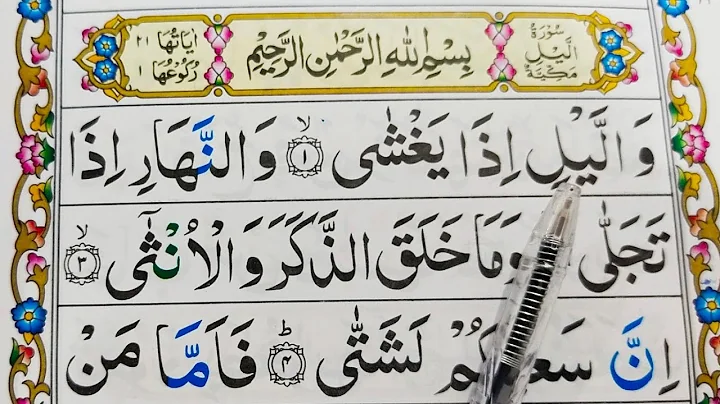 سُوْرَةُ الَّيْلِ مَكِّيَّةٌ
بِسْمِ اللهِ الرَّحْمٰنِ الرَّحِيْمِ
اٰيَاتُهَا ٢١
رُكُوْعُهَا ١
وَالَّيْلِ اِذَا يَغْشٰى ۙ﴿١﴾ وَالنَّهَارِ اِذَا
تَجَلّٰى وَمَا خَلَقَ الذَّكَرَ وَالْاُنْثٰٓى ۙ﴿٣﴾
اِنَّ سَعْيَكُمْ لَشَتّٰى ؕ﴿٤﴾ فَاَمَّا مَنْ